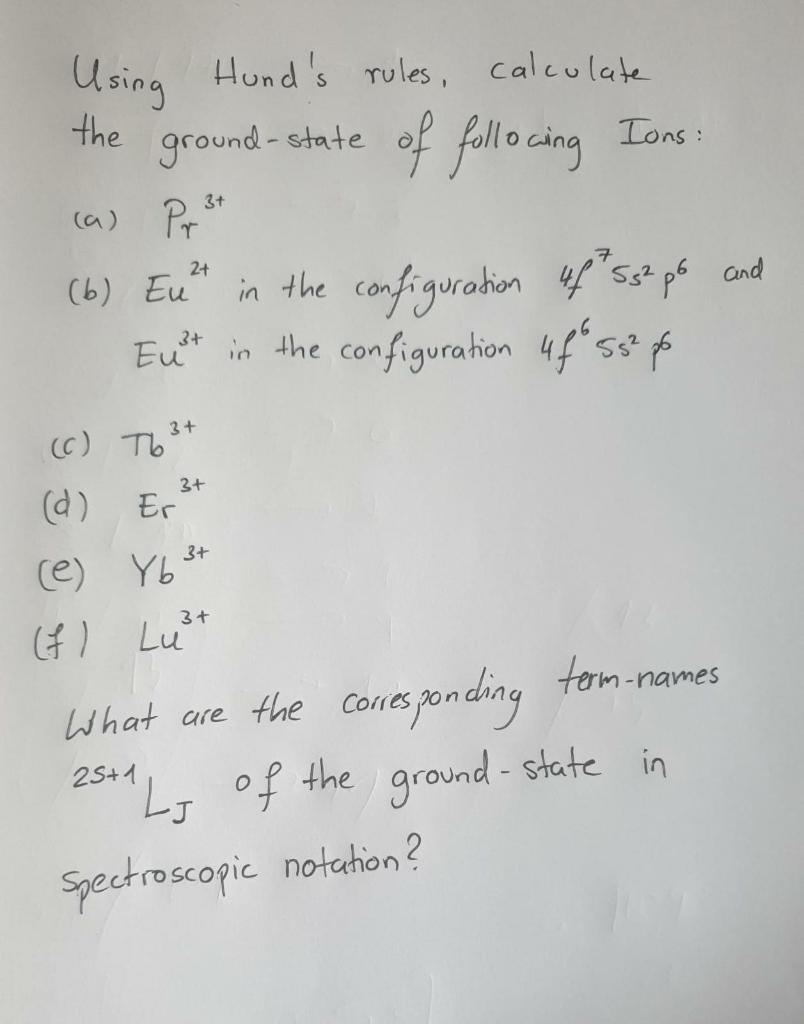 Using Hund's rules, calculate
the ground-state of following Ions:
(a) Pr³⁺
(b) Eu²⁺ in the configuration 4f⁷5s²p⁶ and
Eu³⁺ in the configuration 4f⁶5s²p⁶
(c) Tb³⁺
(d) Er³⁺
(e) Yb³⁺
(f) Lu³⁺
What are the corresponding term-names
²ˢ⁺¹L_J of the ground-state in
spectroscopic notation?